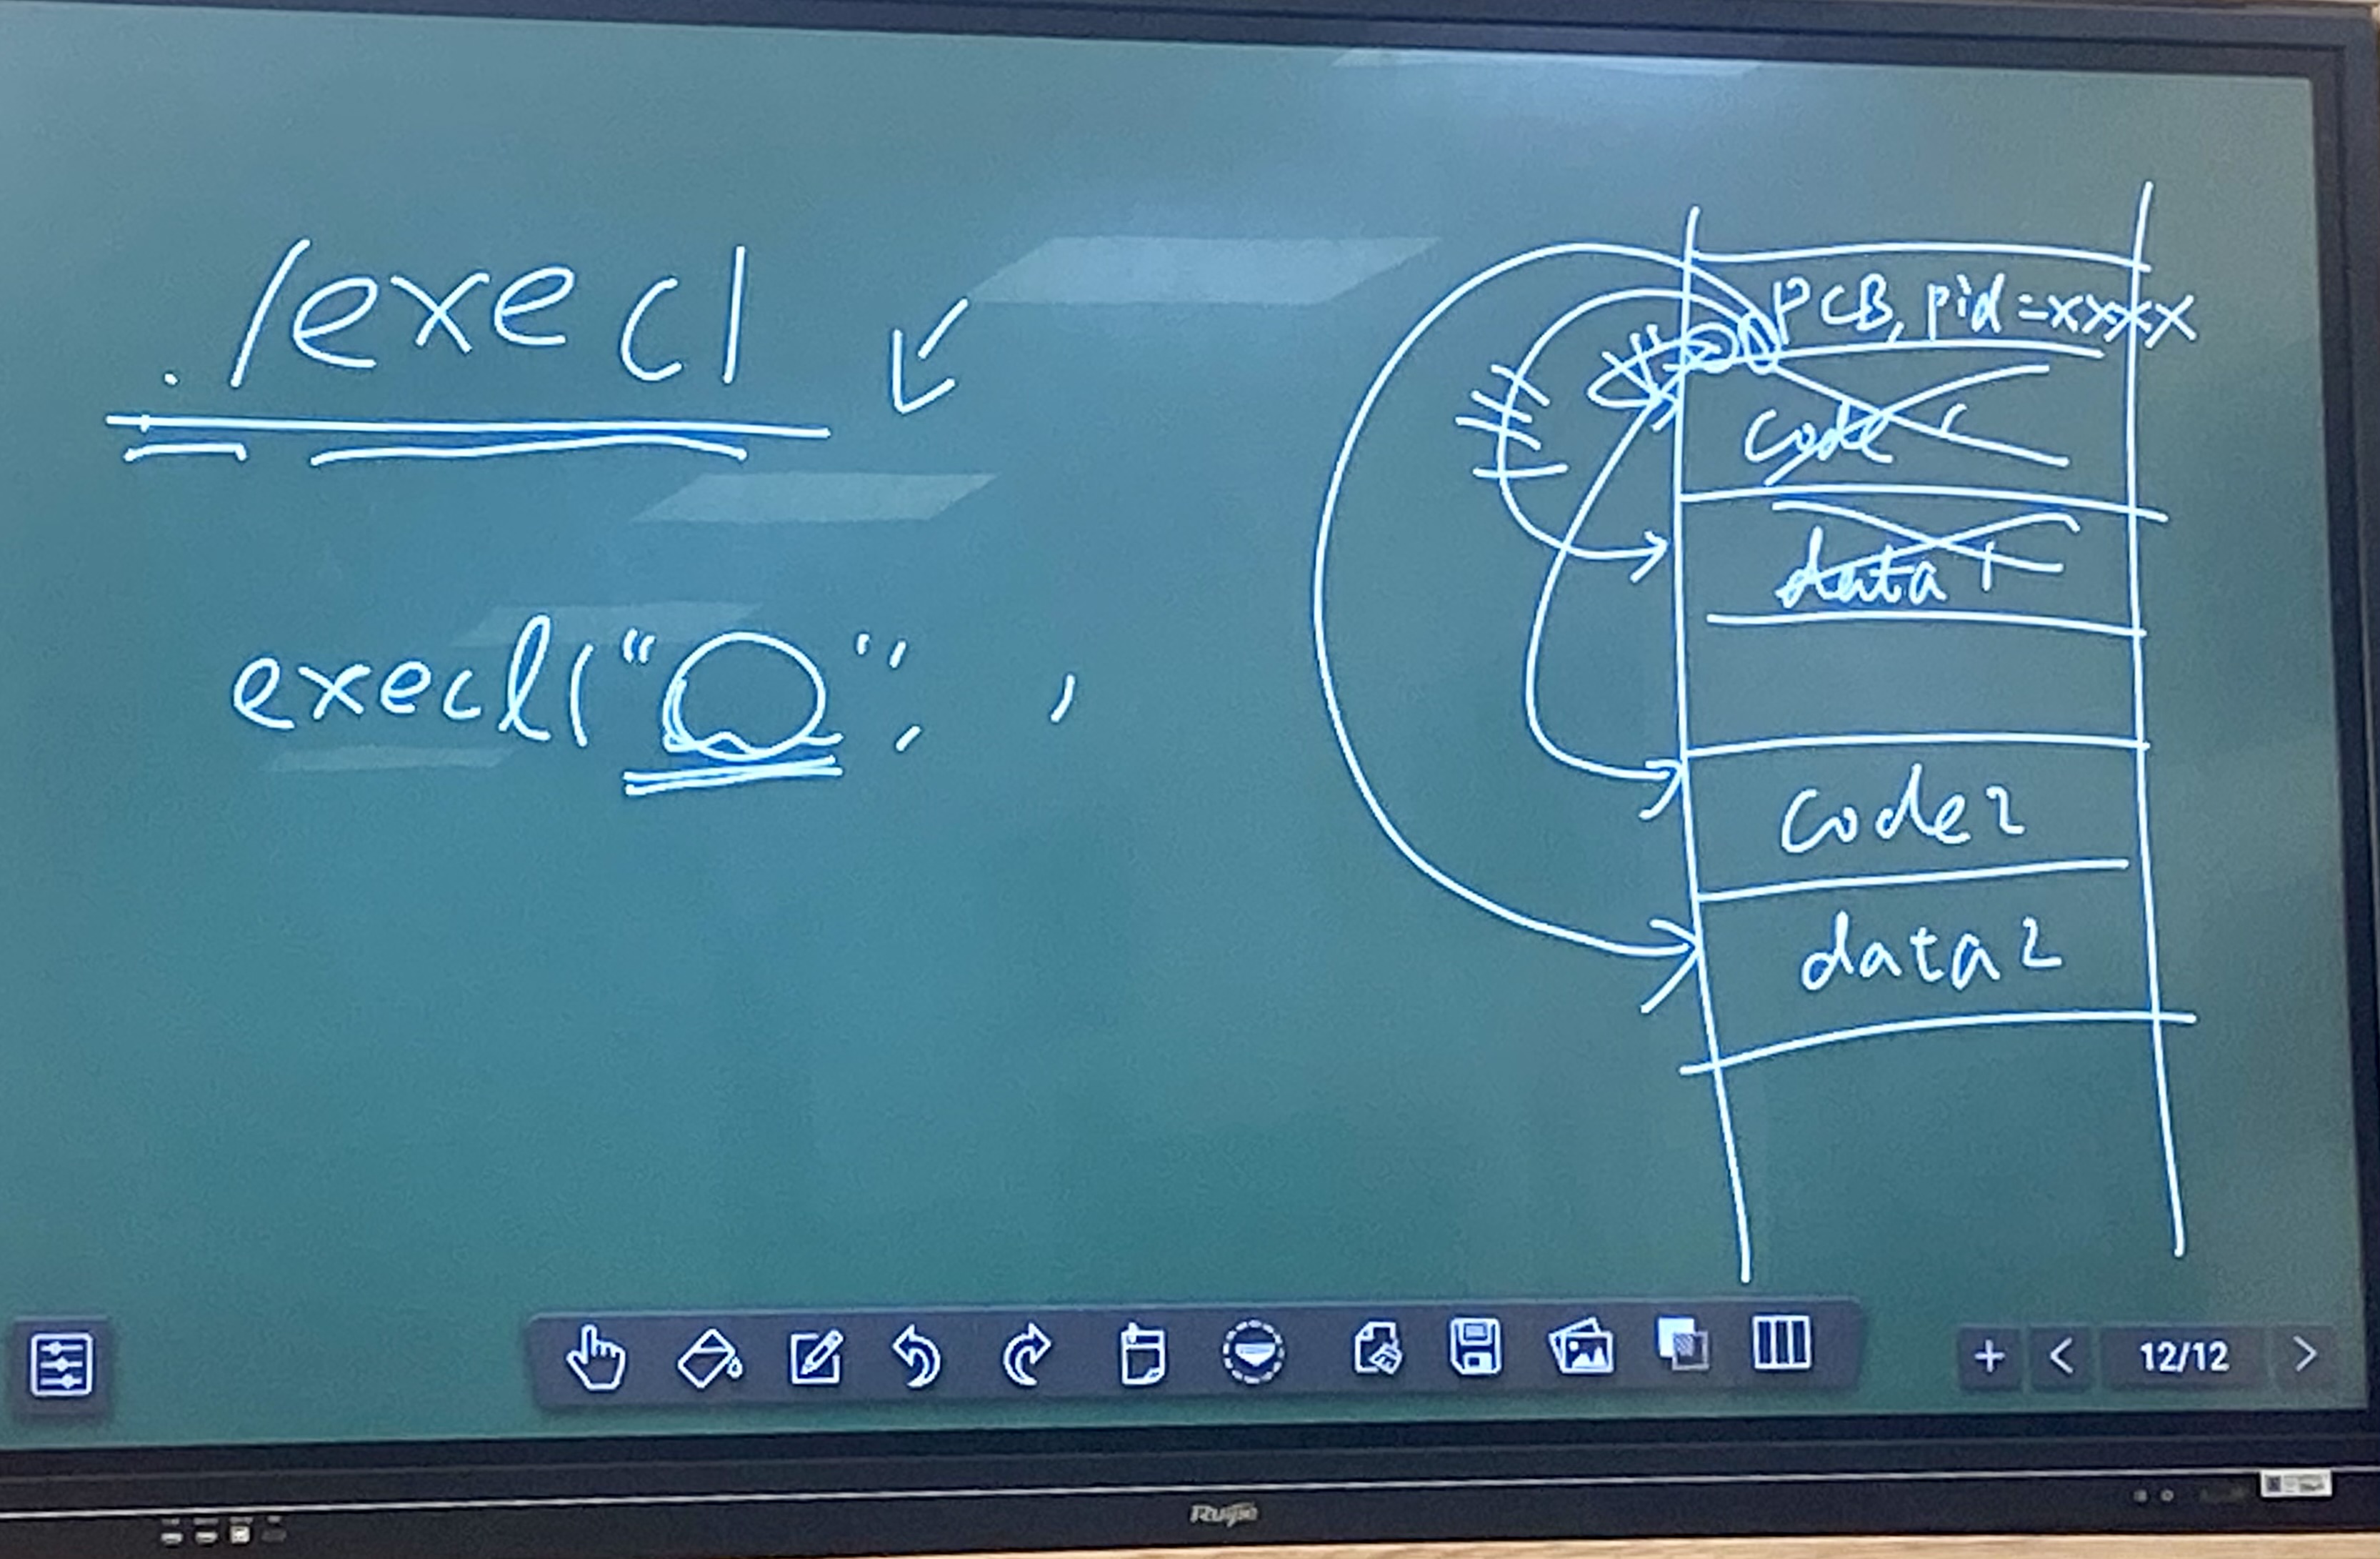 ./exec1
execl(" ", ,
PCB, pid=xxxx
code 1
data 1
code2
data2
12/12
Ruijie